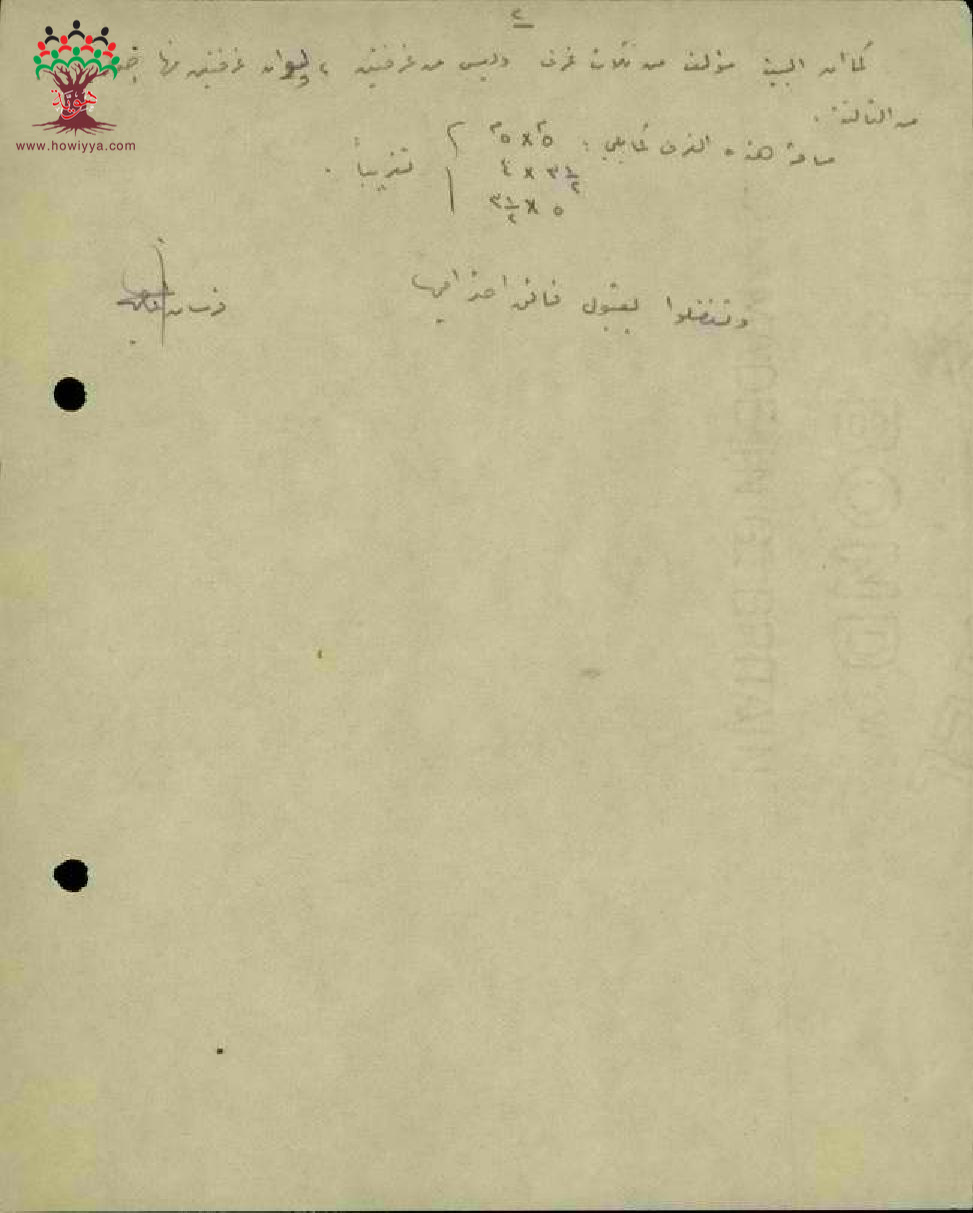 ٢
كما ان البيت مؤلف من ثلاث غرف وليس من غرفتين ، ولو ان غرفتين منها
من الثالثة .
مساحة هذه الغرف كما يلي : ٥ × ٥
٣ ١/٢ × ٤ تقريباً .
٥ × ٣ ١/٢
وتفضلوا بقبول فائق احترامي
هوية
www.howiyya.com